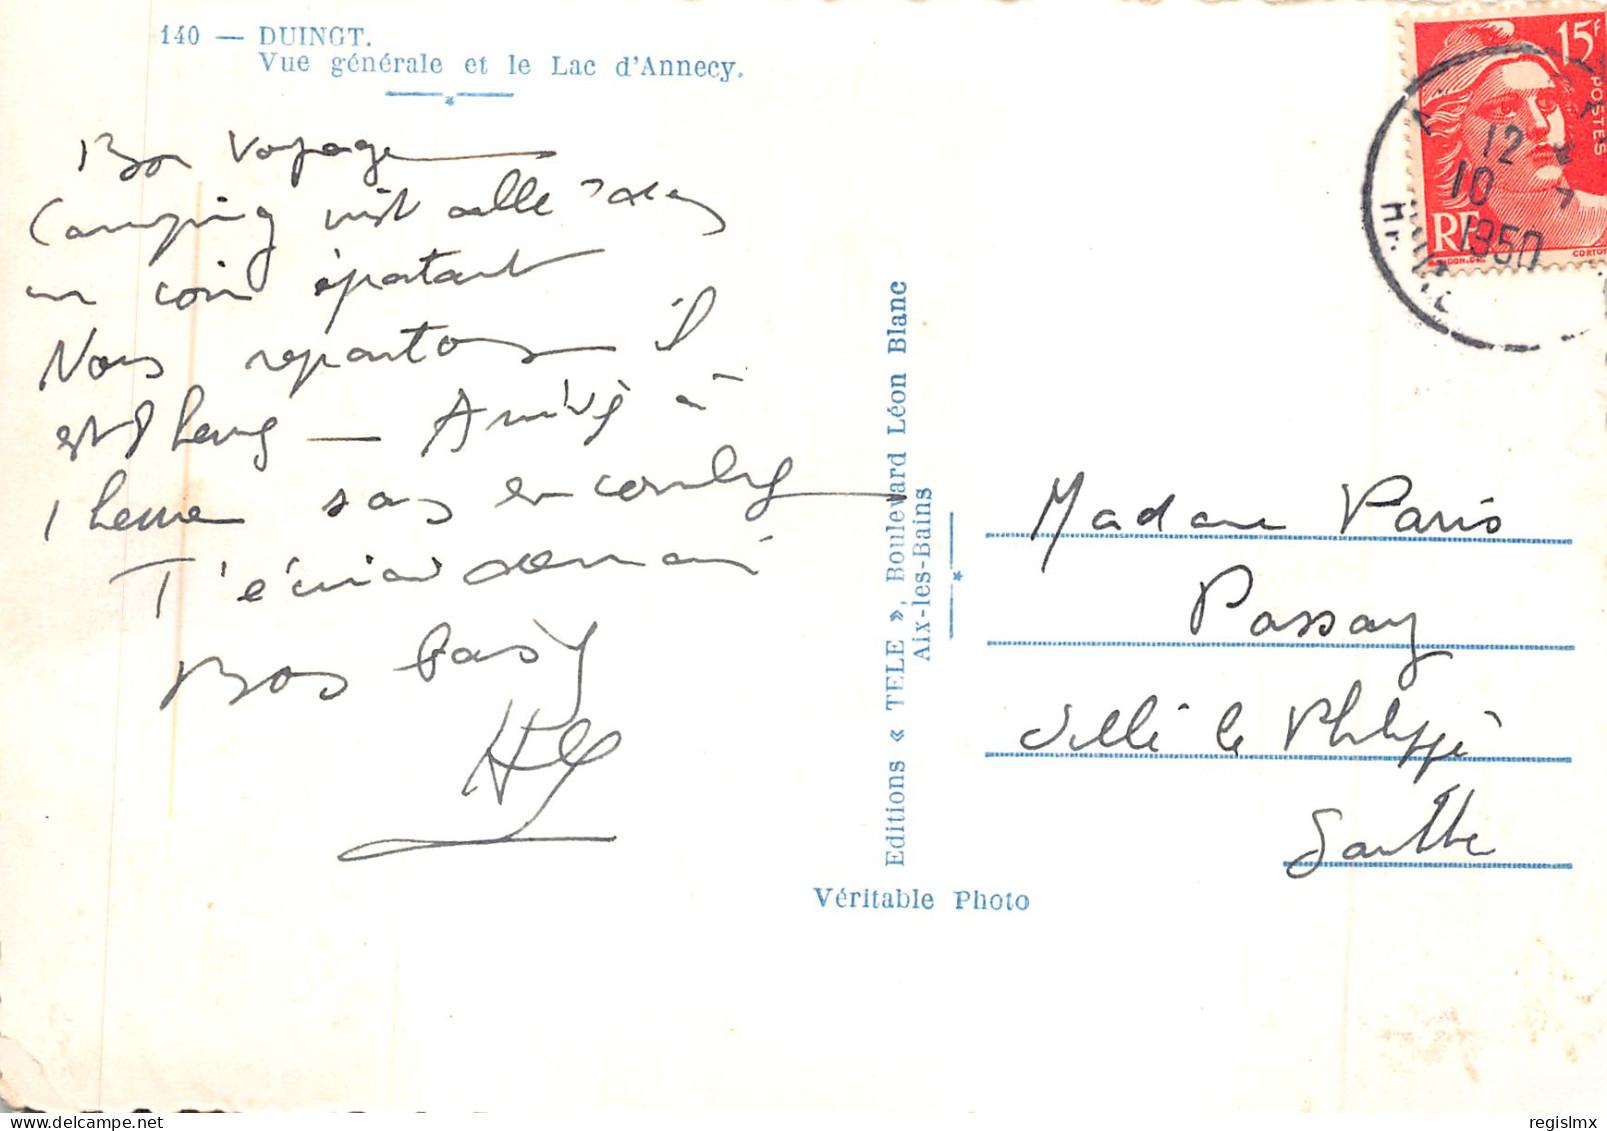 140 — DUINGT.
Vue générale et le Lac d'Annecy.
Bon Voyage
Camping
un coin épatant
Nous repartons il
est 8 heures — Arrivés à
1 heure sans encombre
T'écrirai demain
Bons
Editions « TELE », Boulevard Léon Blanc
Aix-les-Bains
Véritable Photo
15F
POSTES
RF
12
10
1950
Madame Paris
Passay
Sillé le Philippe
Sarthe
regislmx